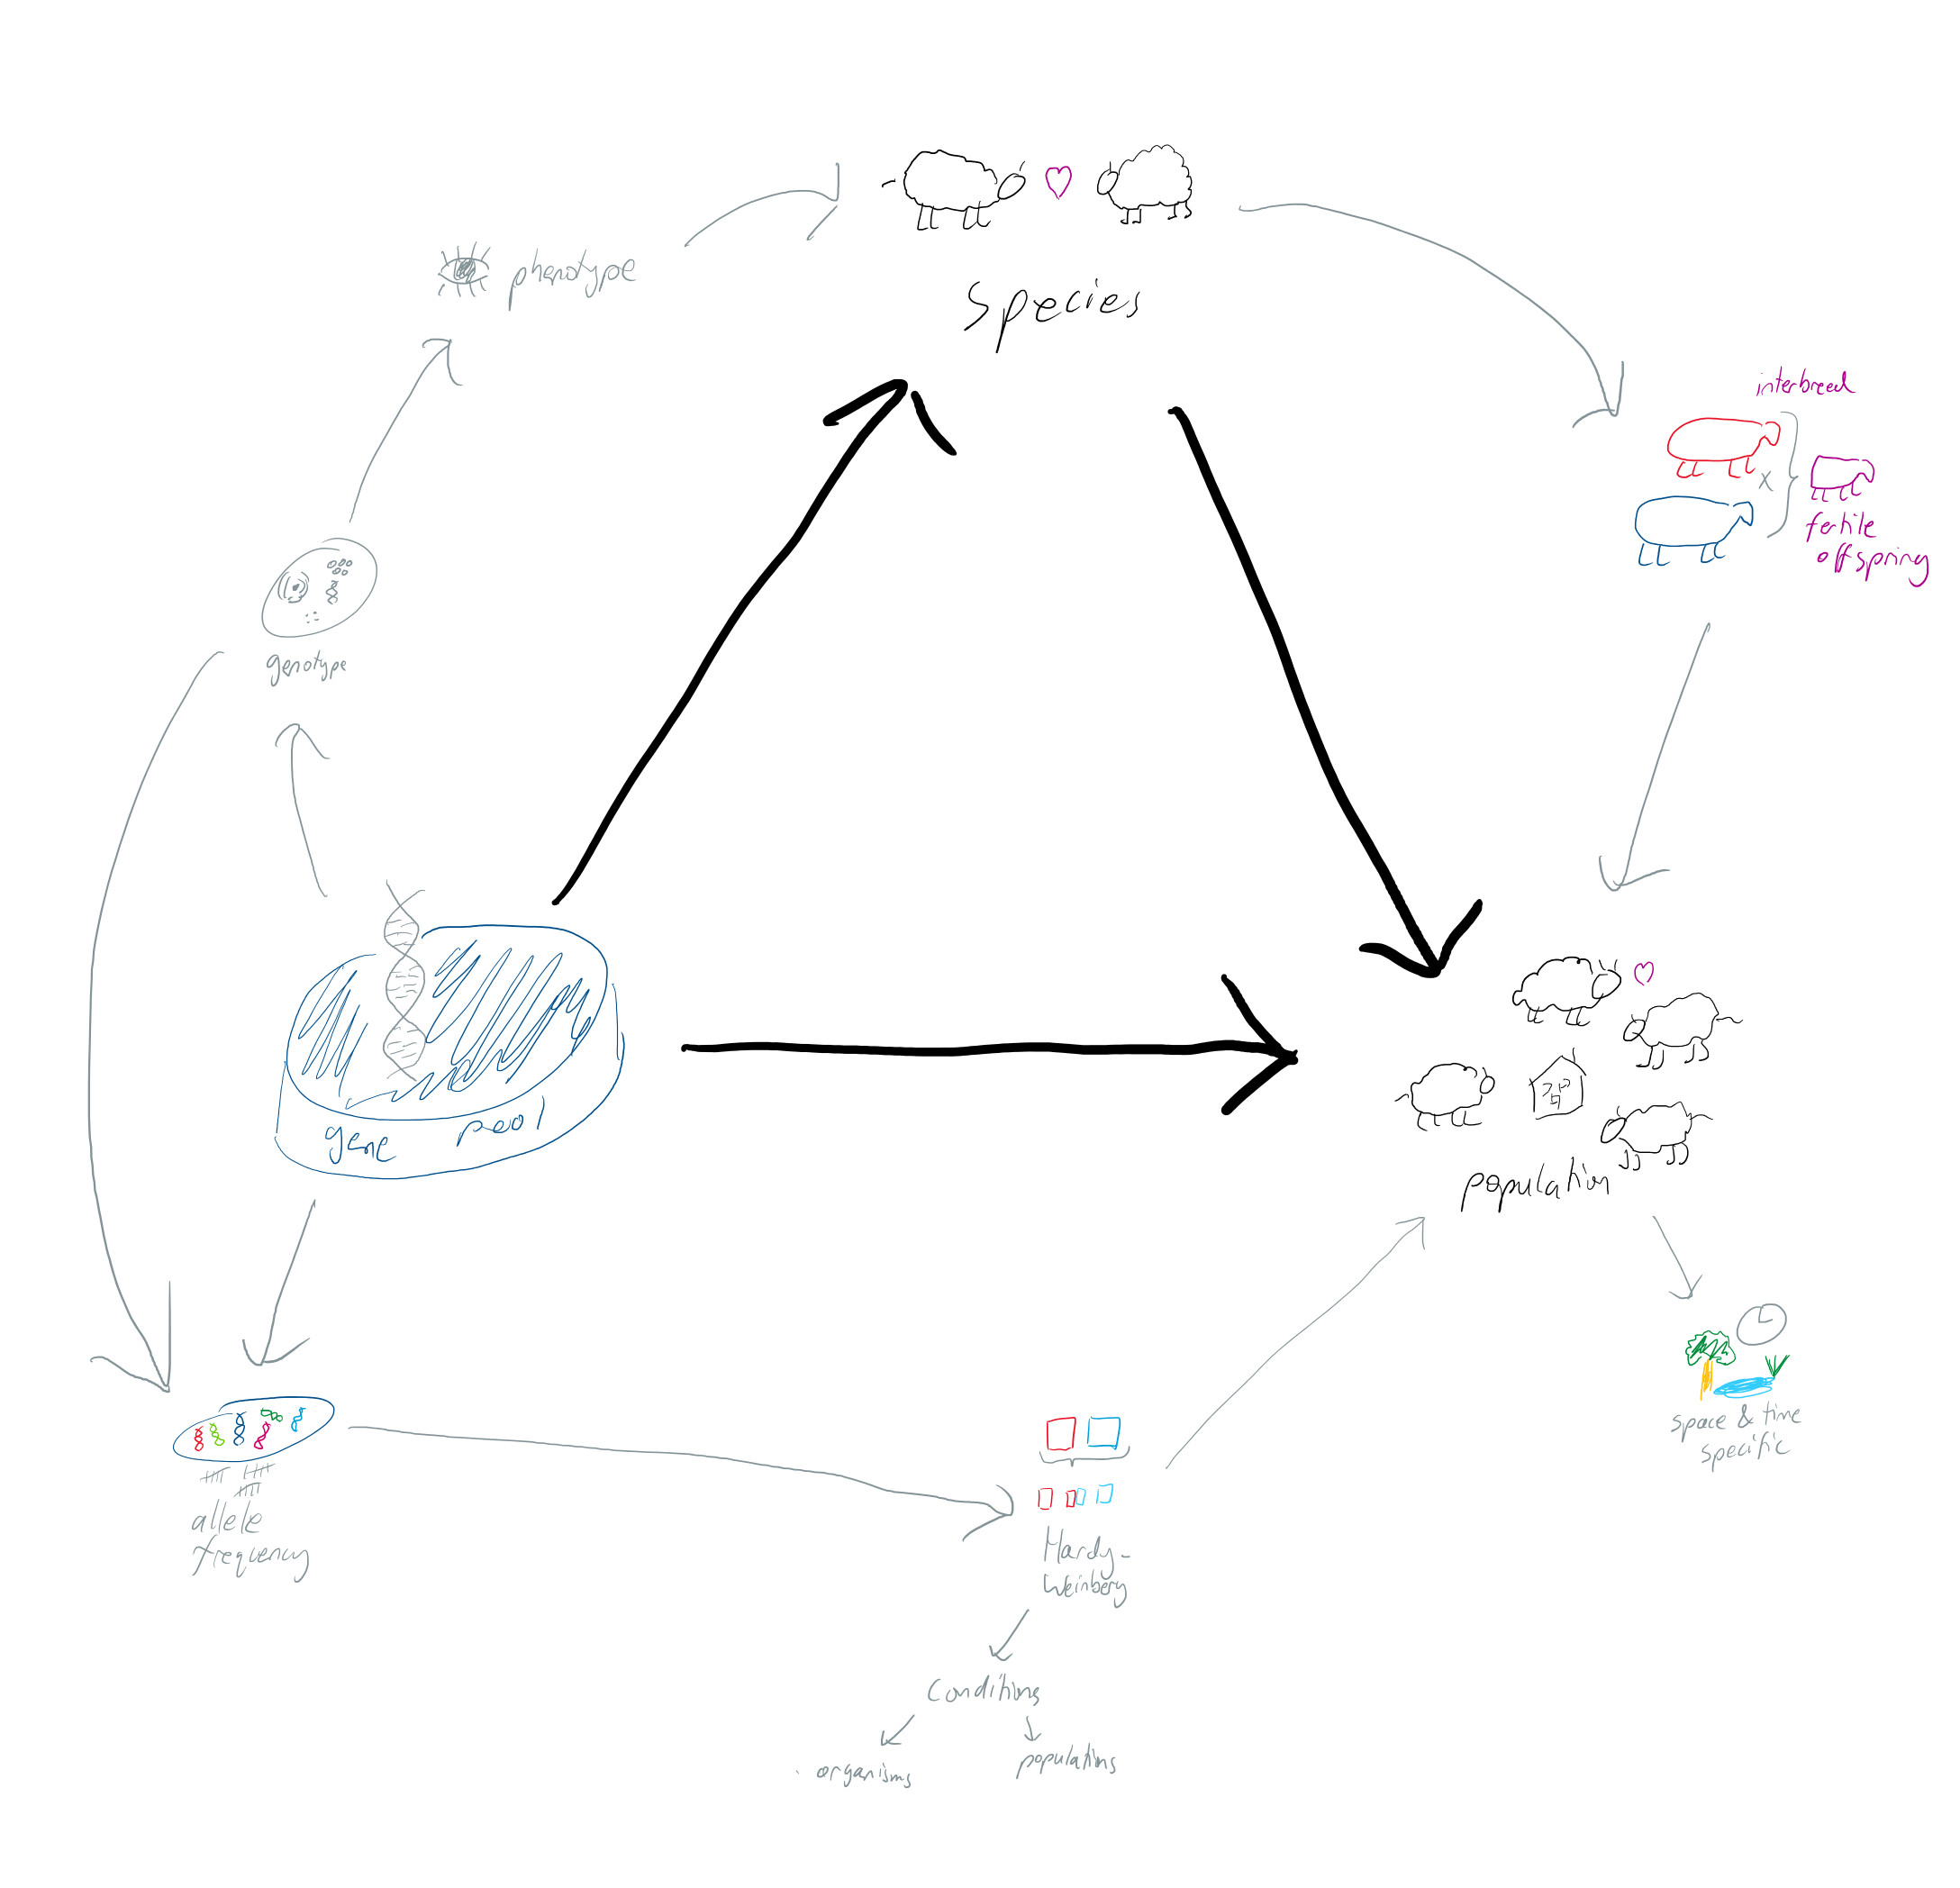 phenotype
Species
interbreed
x
fertile
offspring
genotype
gene pool
population
space & time
specific
allele
frequency
Hardy-
Weinberg
Conditions
organisms
populations